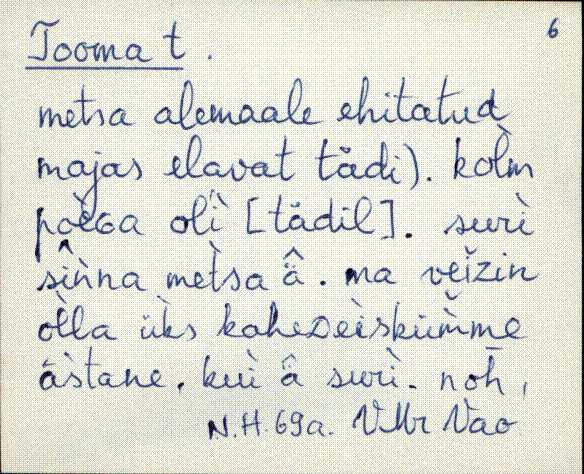 6
Tooma t.
metsa alemaale ehitatud
majas elavat tädi). kol̀m
poèGa olì [tädil]. surì
sîǹna met̀sa ä̂. ma veìzin
òlla ük̀s kaheᴅeìsküm̀me
äs̀tane. kuì ä̂ surì. noh̄,
N.H. 69a. VMr Vao